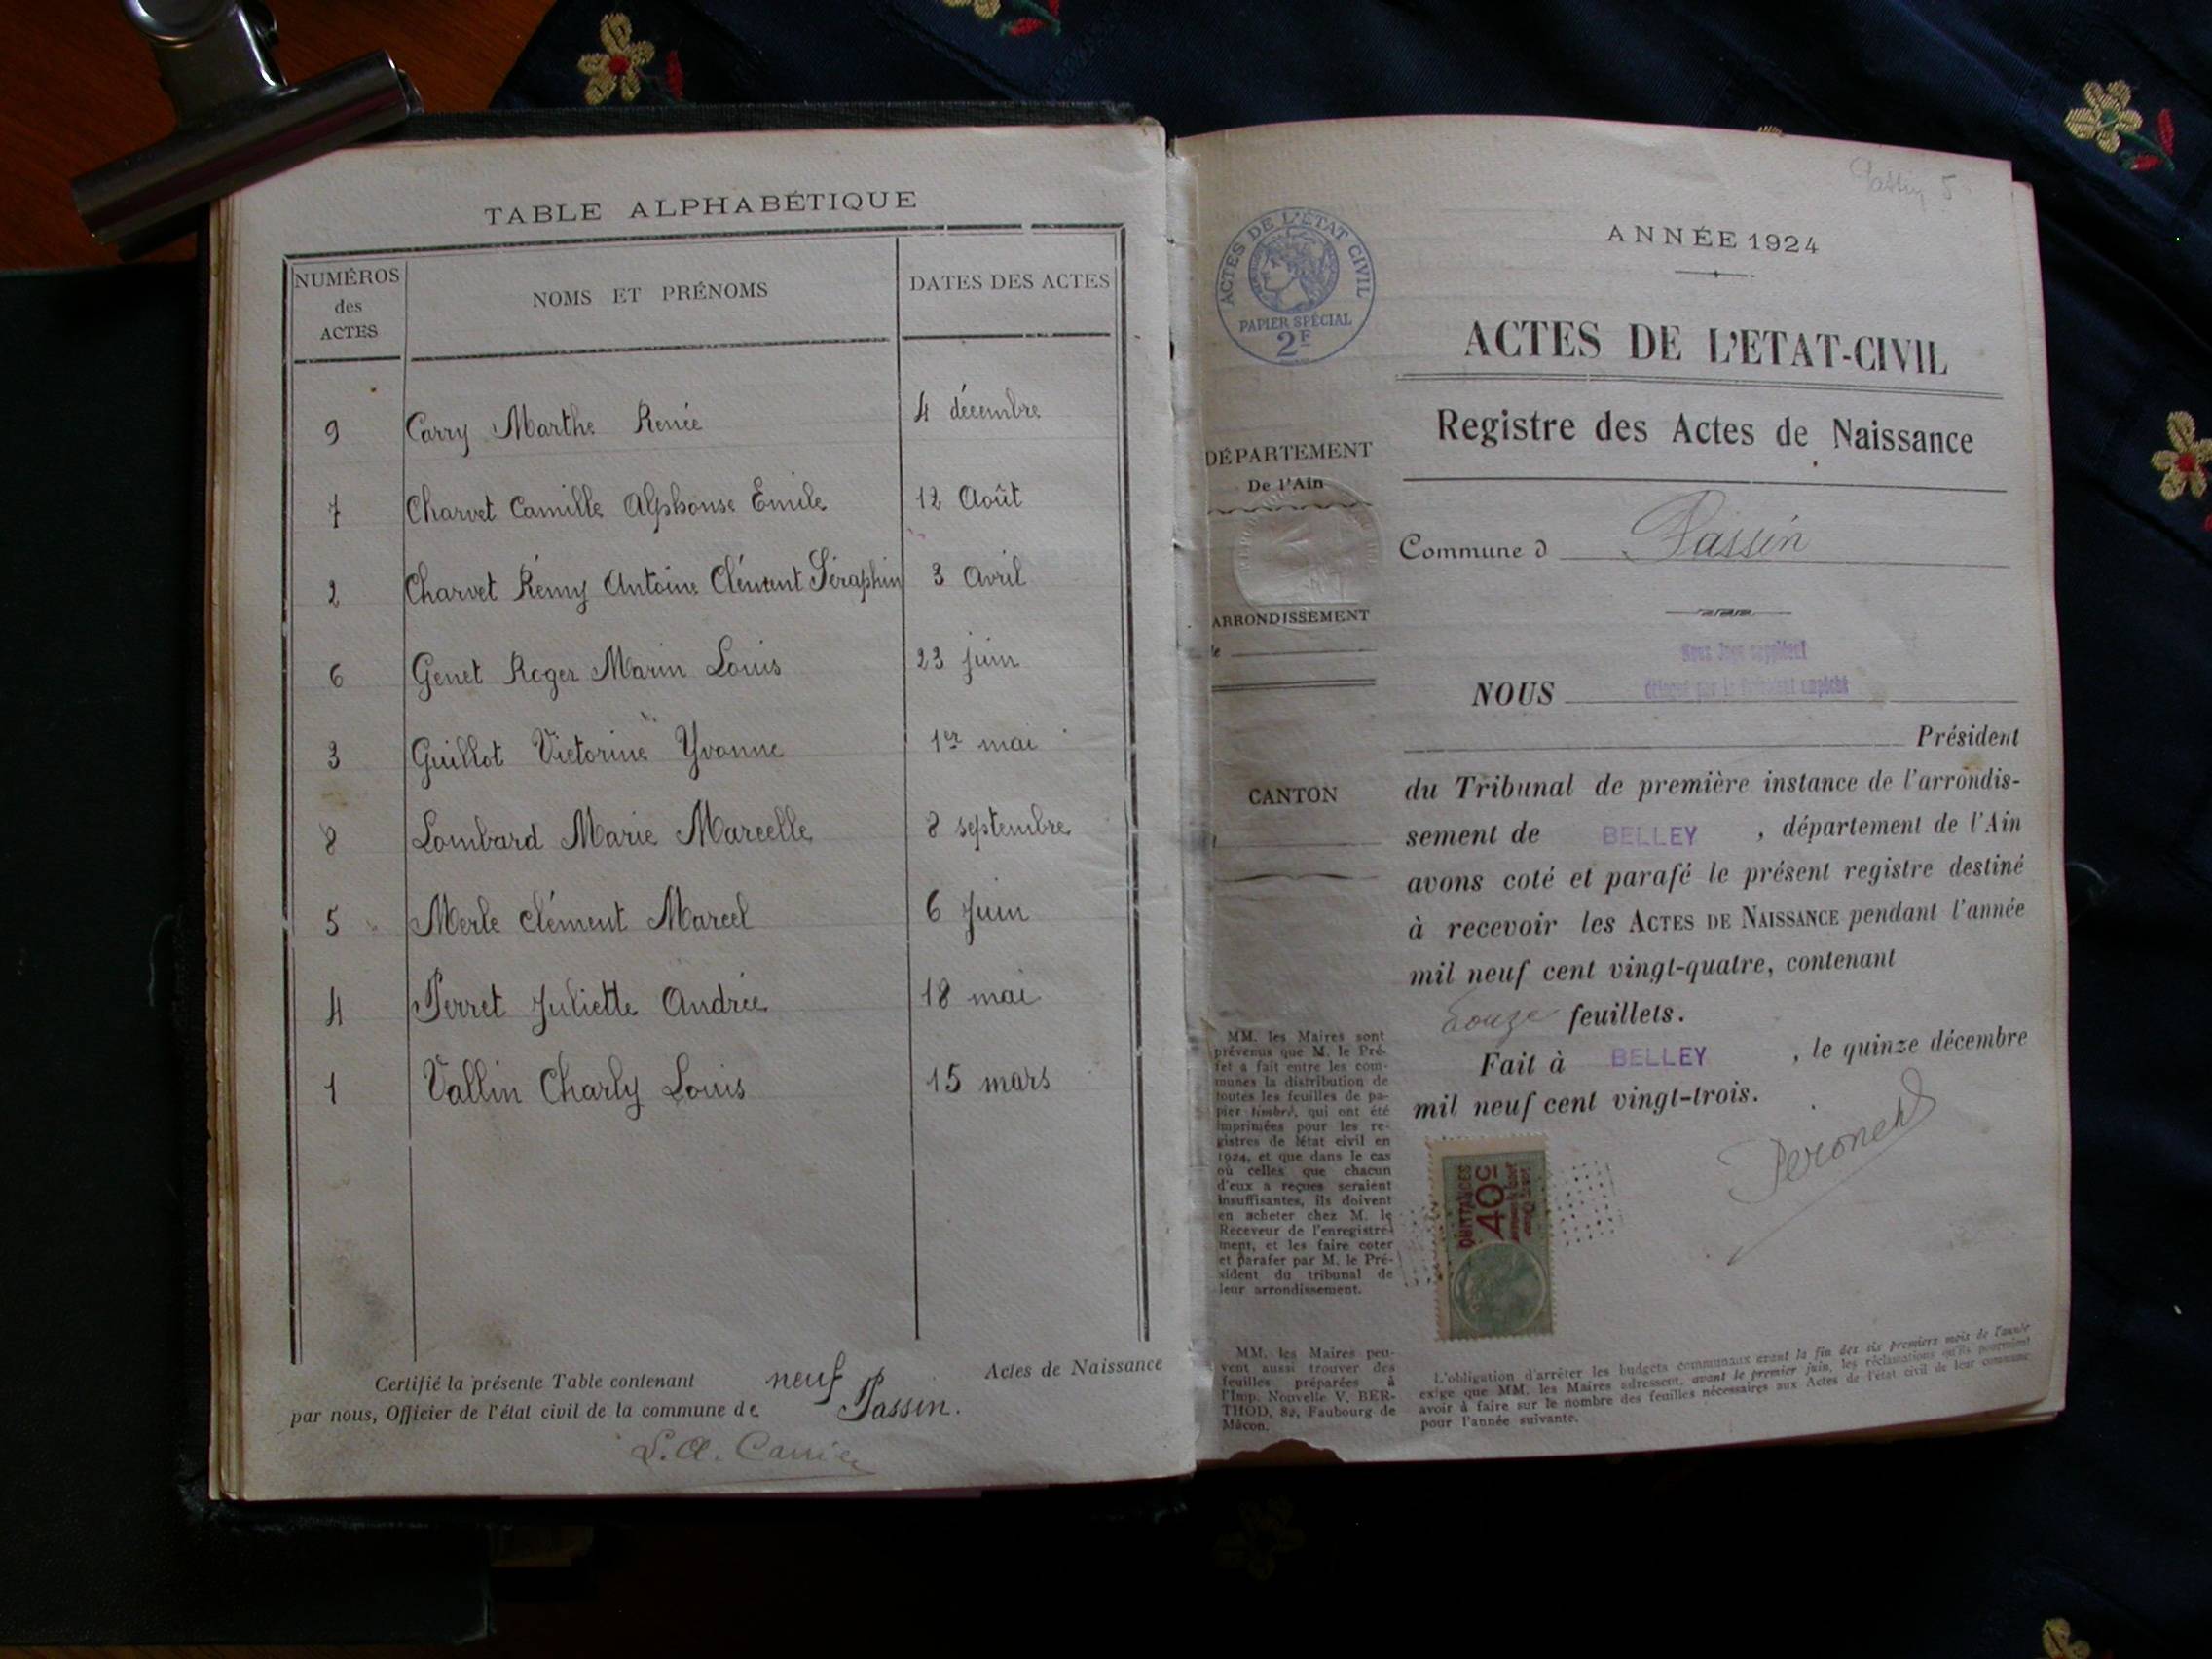 TABLE ALPHABÉTIQUE
NUMÉROS
des
ACTES
NOMS ET PRÉNOMS
DATES DES ACTES
9 Carry Marthe Renée 4 décembre
7 Charvet Camille Alphonse Emile 12 Août
2 Charvet Rémy Antoine Clément Séraphin 3 Avril
6 Genet Roger Marin Louis 23 juin
3 Guillot Victorine Yvonne 1er mai
8 Lombard Marie Marcelle 8 septembre
5 Merle Clément Marcel 6 Juin
4 Perret Juliette Andrée 18 mai
1 Vallin Charly Louis 15 mars
Certifié la présente Table contenant neuf Actes de Naissance
par nous, Officier de l'état civil de la commune de Passin.
Passin 5
ACTES DE L'ÉTAT CIVIL
PAPIER SPÉCIAL
2F
ANNÉE 1924
ACTES DE L'ETAT-CIVIL
Registre des Actes de Naissance
DÉPARTEMENT
De l'Ain
ARRONDISSEMENT
CANTON
Commune d Passin
Nous Juge suppléant
délégué par le Président empêché
NOUS
Président
du Tribunal de première instance de l'arrondis-
sement de BELLEY, département de l'Ain
avons coté et parafé le présent registre destiné
à recevoir les ACTES DE NAISSANCE pendant l'année
mil neuf cent vingt-quatre, contenant
douze feuillets.
Fait à BELLEY, le quinze décembre
mil neuf cent vingt-trois.
QUITTANCES
40c
MM. les Maires sont
prévenus que M. le Pré-
fet a fait entre les com-
munes la distribution de
toutes les feuilles de pa-
pier timbré, qui ont été
imprimées pour les re-
gistres de létat civil en
1924, et que dans le cas
où celles que chacun
d'eux a reçues seraient
insuffisantes, ils doivent
en acheter chez M. le
Receveur de l'enregistre-
ment, et les faire coter
et parafer par M. le Pré-
sident du tribunal de
leur arrondissement.
MM. les Maires peu-
vent aussi trouver des
feuilles préparées à
l'Imp. Nouvelle V. BER-
THOD, 82, Faubourg de
Mâcon.
L'obligation d'arrêter les budgets communaux avant la fin des six premiers mois de l'année
exige que MM. les Maires adressent, avant le premier juin, les réclamations qu'ils pourraient
avoir à faire sur le nombre des feuilles nécessaires aux Actes de l'état civil de leur commune
pour l'année suivante.